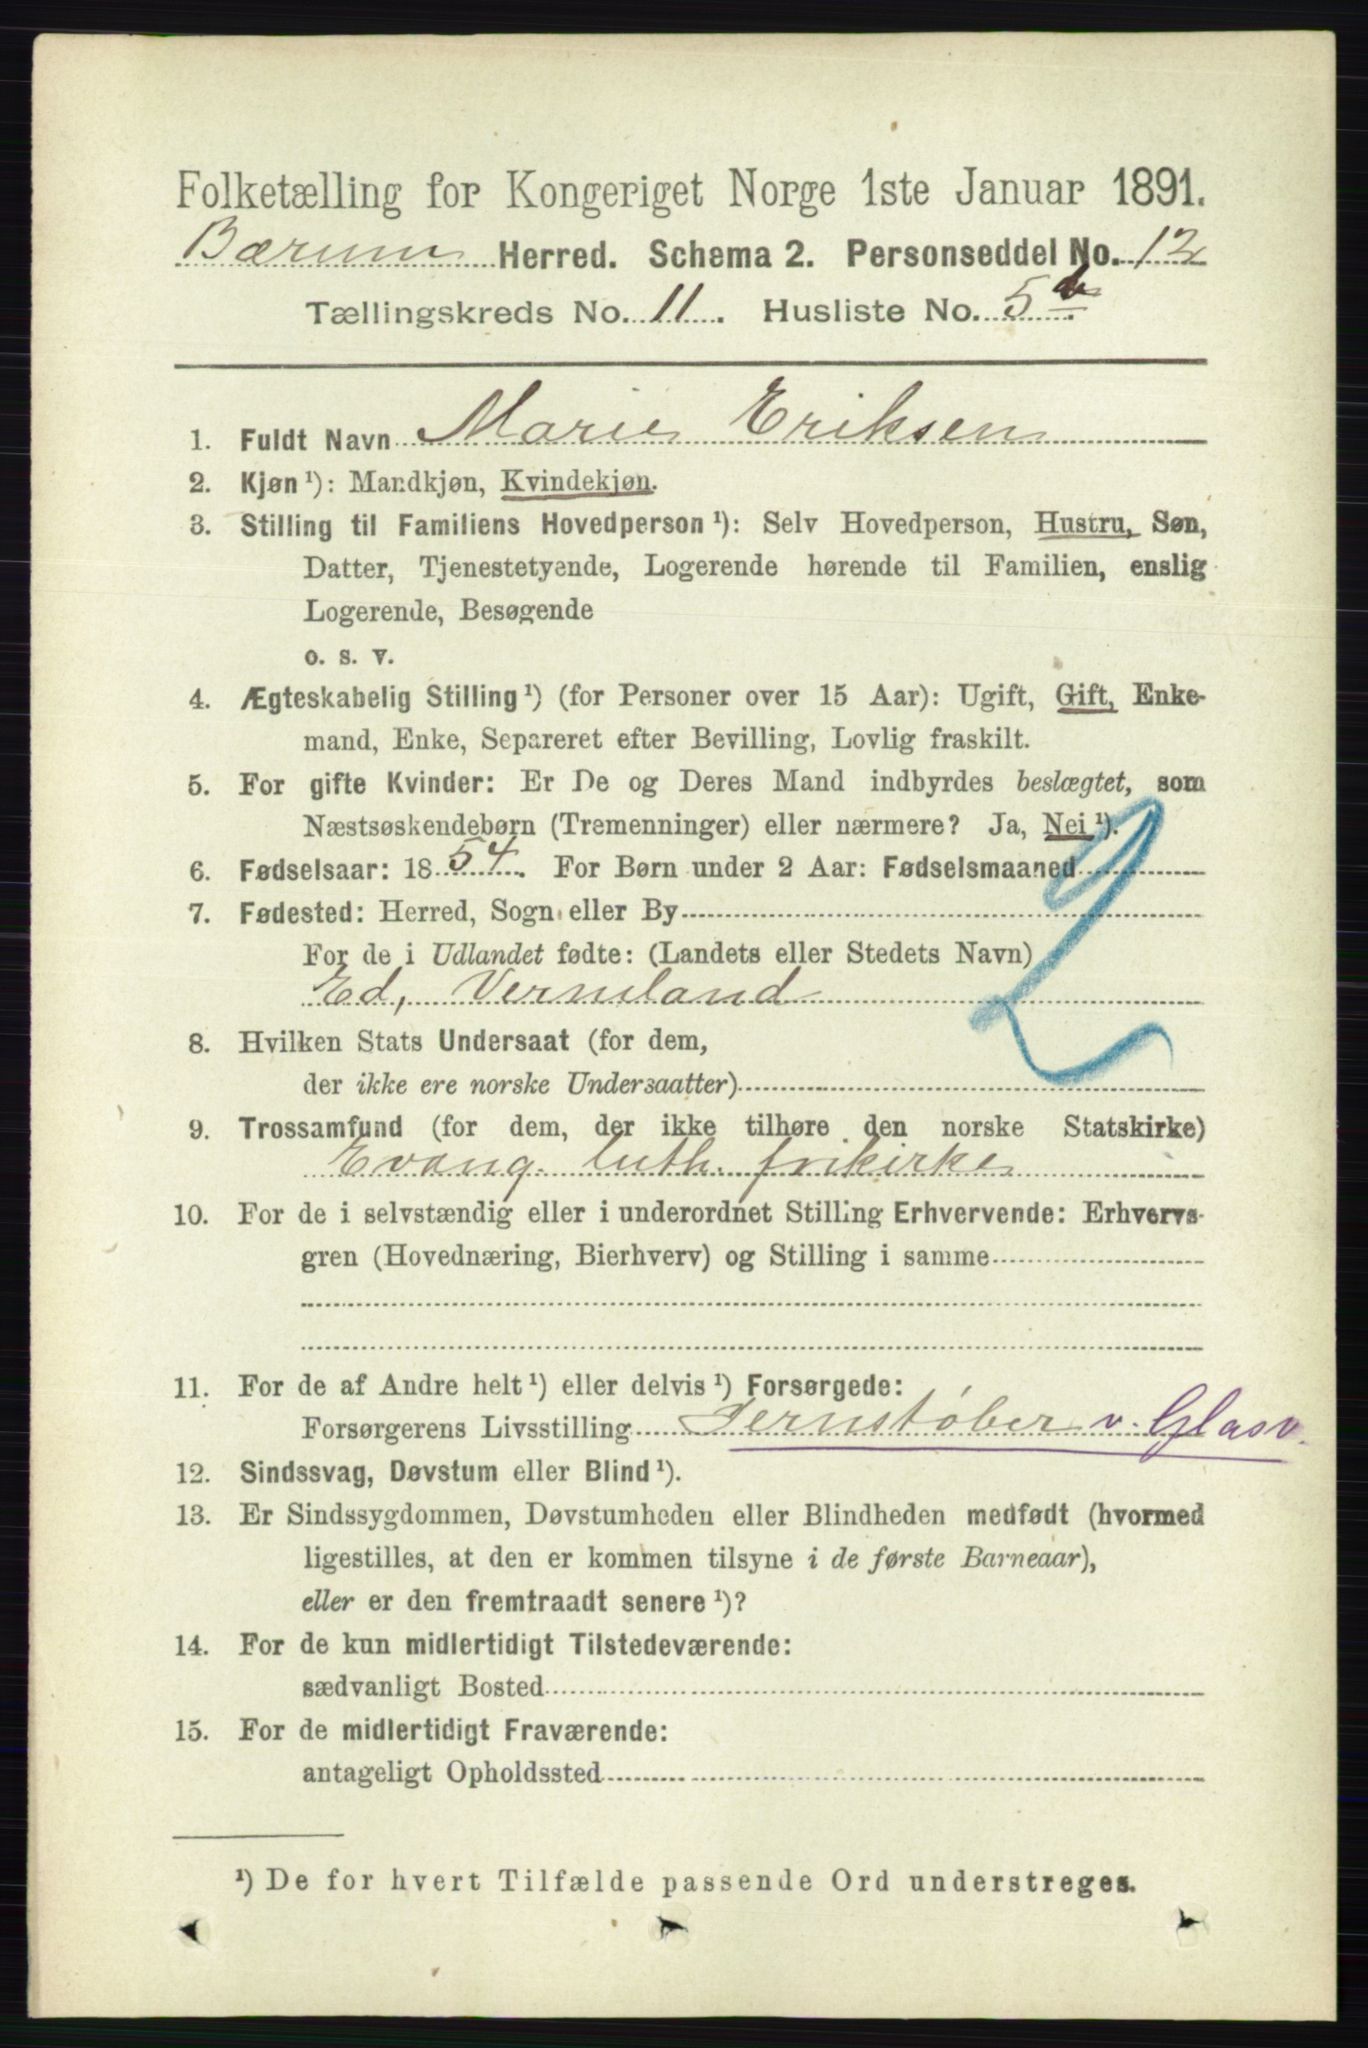 Folketælling for Kongeriget Norge 1ste Januar 1891.
Bærum Herred. Schema 2. Personseddel No. 12
Tællingskreds No. 11. Husliste No. 5 b
1. Fuldt Navn Marie Eriksen
2. Kjøn ¹): Mandkjøn, Kvindekjøn.
3. Stilling til Familiens Hovedperson ¹): Selv Hovedperson, Hustru, Søn,
Datter, Tjenestetyende, Logerende hørende til Familien, enslig
Logerende, Besøgende
o. s. v.
4. Ægteskabelig Stilling ¹) (for Personer over 15 Aar): Ugift, Gift, Enke-
mand, Enke, Separeret efter Bevilling, Lovlig fraskilt.
5. For gifte Kvinder: Er De og Deres Mand indbyrdes beslægtet, som
Næstsøskendebørn (Tremenninger) eller nærmere? Ja, Nei ¹).
6. Fødselsaar: 1854. For Børn under 2 Aar: Fødselsmaaned
7. Fødested: Herred, Sogn eller By
For de i Udlandet fødte: (Landets eller Stedets Navn)
Ed, Vermland
2
8. Hvilken Stats Undersaat (for dem,
der ikke ere norske Undersaatter)
9. Trossamfund (for dem, der ikke tilhøre den norske Statskirke)
Evang. luth. frikirke
10. For de i selvstændig eller i underordnet Stilling Erhvervende: Erhvervs-
gren (Hovednæring, Bierhverv) og Stilling i samme
11. For de af Andre helt ¹) eller delvis ¹) Forsørgede:
Forsørgerens Livsstilling Jernstøber v. Glasv.
12. Sindssvag, Døvstum eller Blind ¹).
13. Er Sindssygdommen, Døvstumheden eller Blindheden medfødt (hvormed
ligestilles, at den er kommen tilsyne i de første Barneaar),
eller er den fremtraadt senere ¹)?
14. For de kun midlertidigt Tilstedeværende:
sædvanligt Bosted
15. For de midlertidigt Fraværende:
antageligt Opholdssted
¹) De for hvert Tilfælde passende Ord understreges.